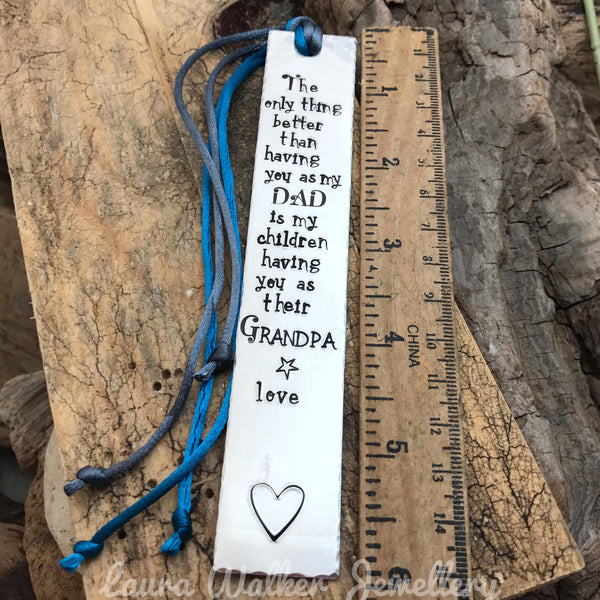 The
only thing
better
than
having
you as my
DAD
is my
children
having
you as
their
GRANDPA
love
1
2
3
4
5
6
CHINA
1
2
3
4
5
6
7
8
9
10
11
12
13
14
Laura Walker Jewellery